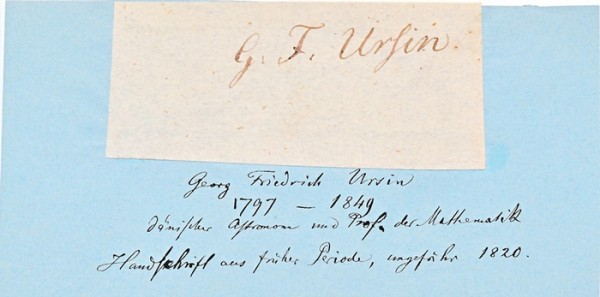 G. F. Ursin.
Georg Friedrich Ursin
1797 — 1849
dänischer Astronom und Prof. der Mathematik
Handschrift aus früher Periode, ungefähr 1820.